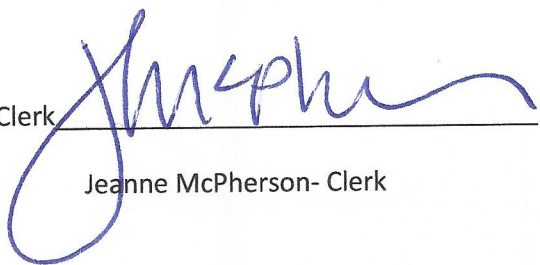 Clerk JMcPhe
Jeanne McPherson- Clerk